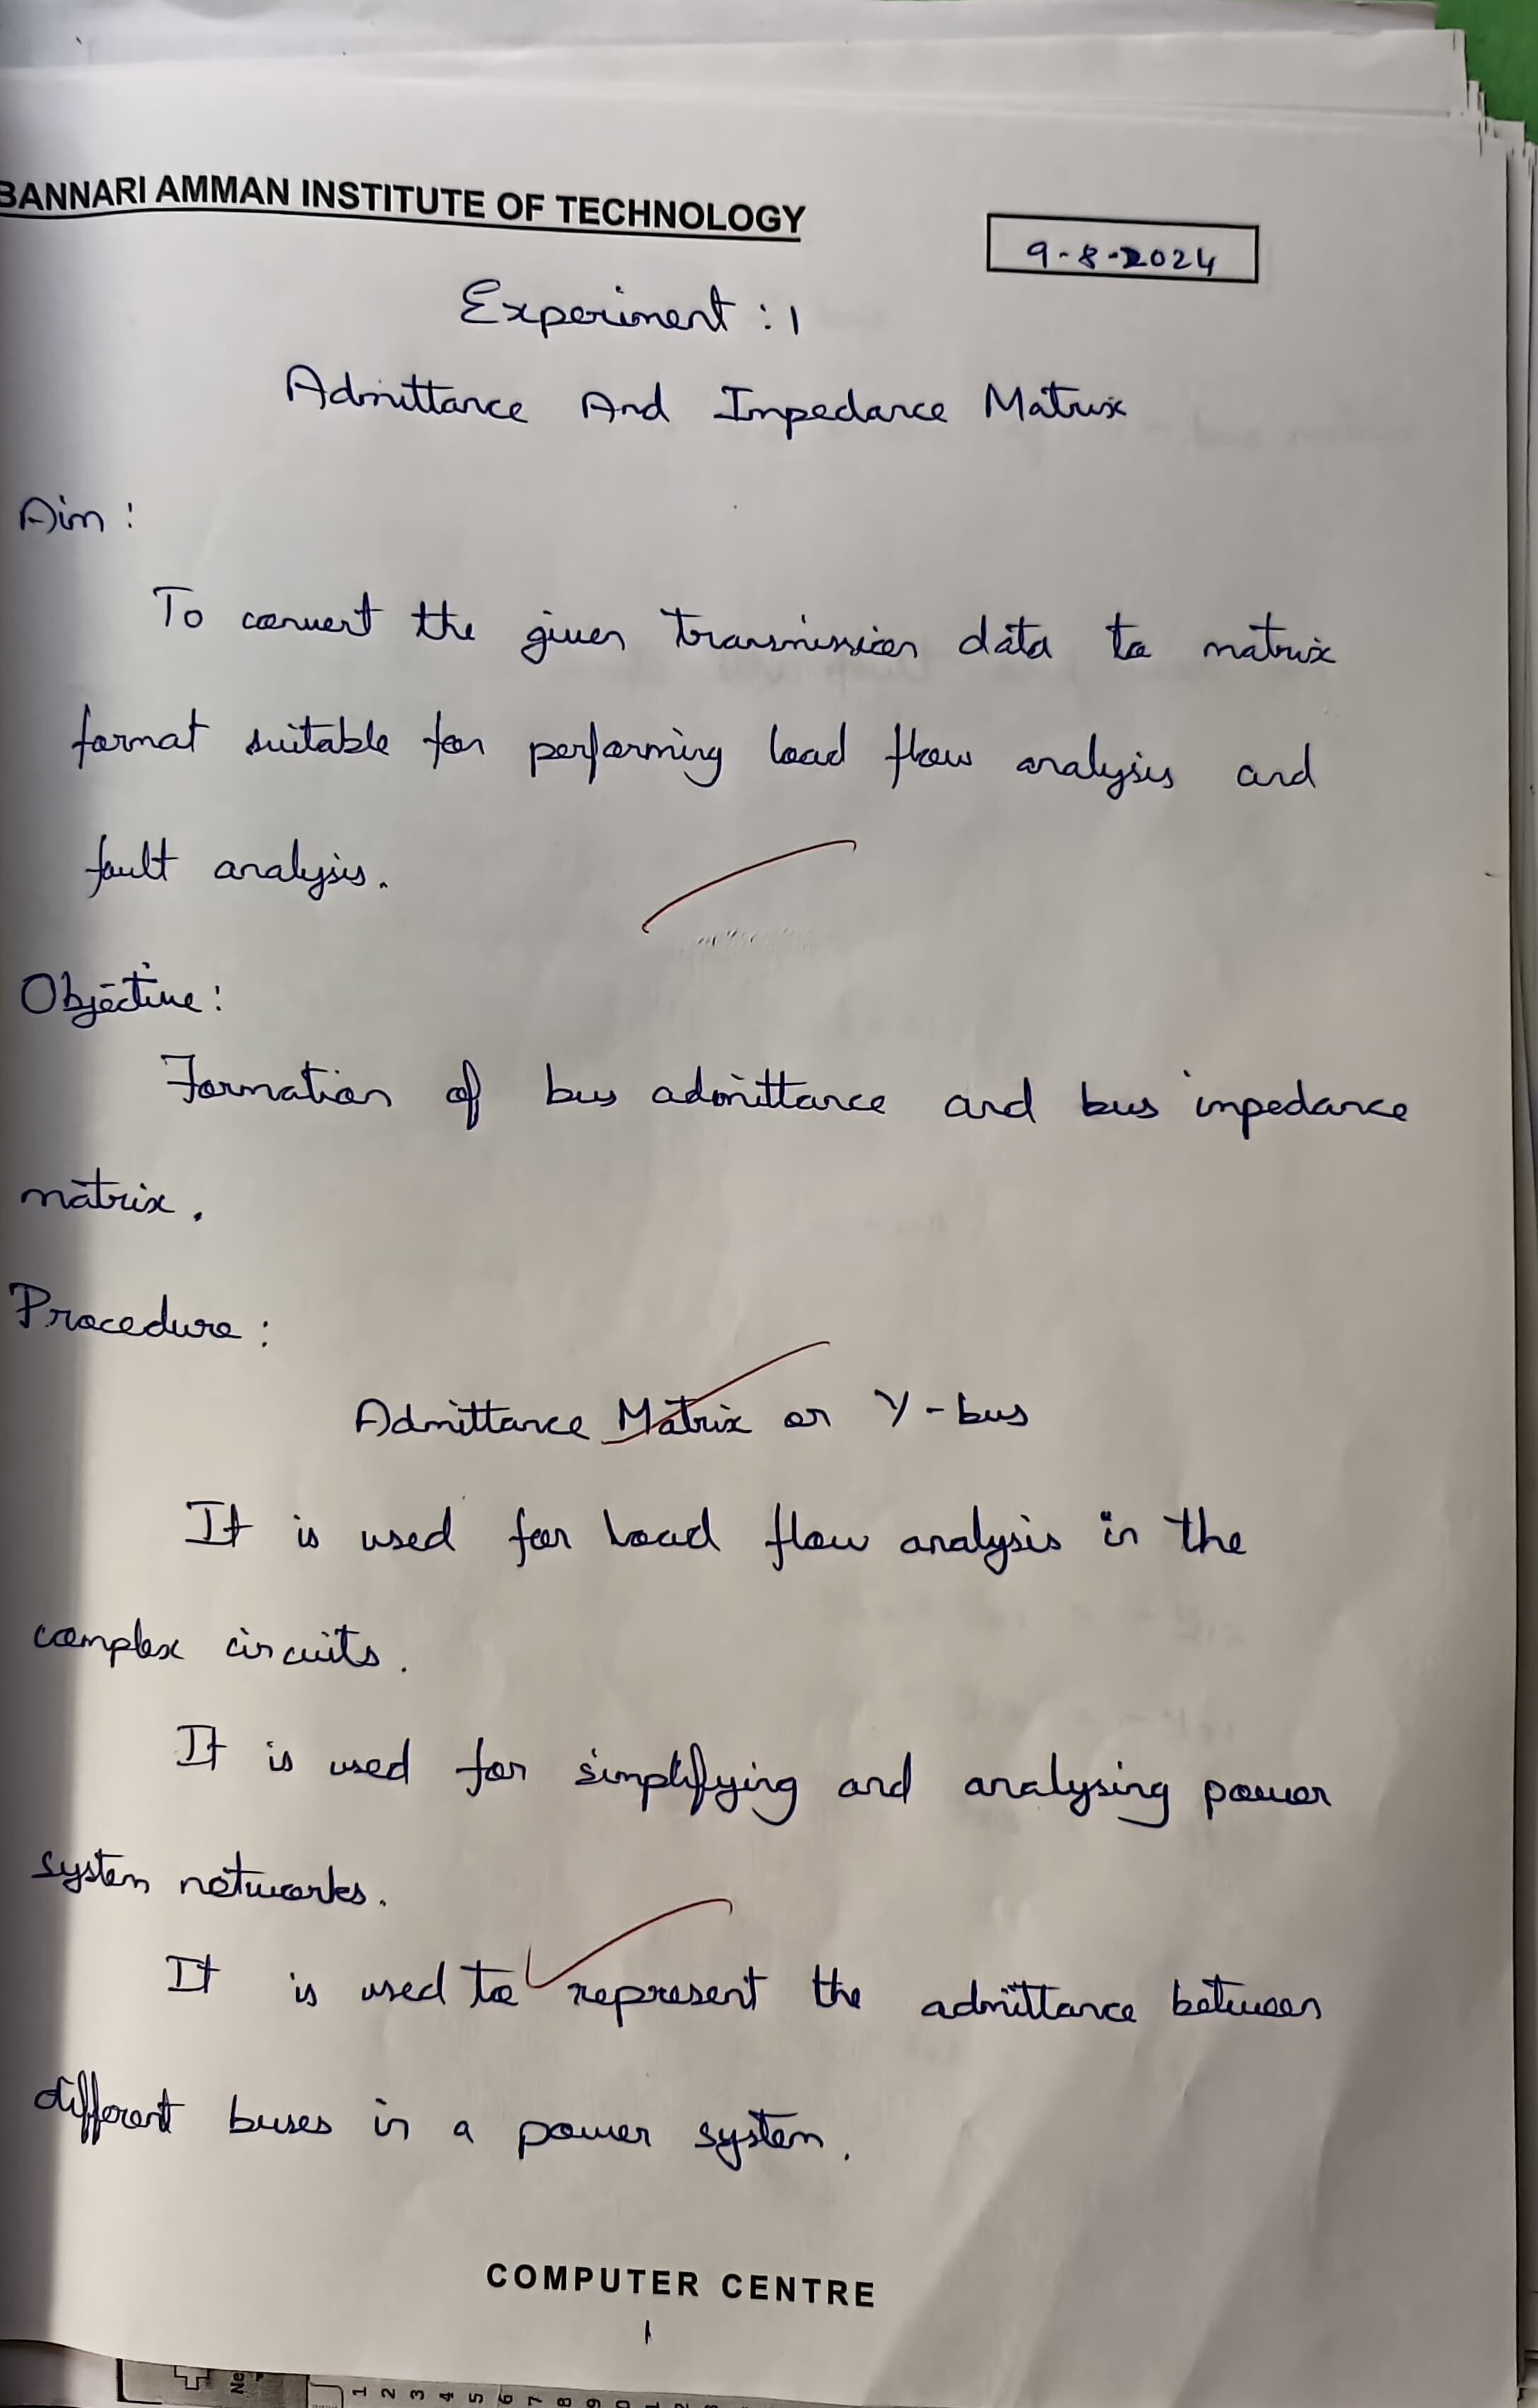 BANNARI AMMAN INSTITUTE OF TECHNOLOGY
9-8-2024
Experiment : 1
Admittance And Impedance Matrix
Aim :
To convert the given transmission data to matrix
format suitable for performing load flow analysis and
fault analysis.
Objective :
Formation of bus admittance and bus impedance
matrix.
Procedure :
Admittance Matrix or Y-bus
It is used for Load flow analysis in the
complex circuits.
It is used for simplifying and analysing power
system networks.
It is used to represent the admittance between
different buses in a power system.
COMPUTER CENTRE
1
1 2 3 4 5 6 7 8 9